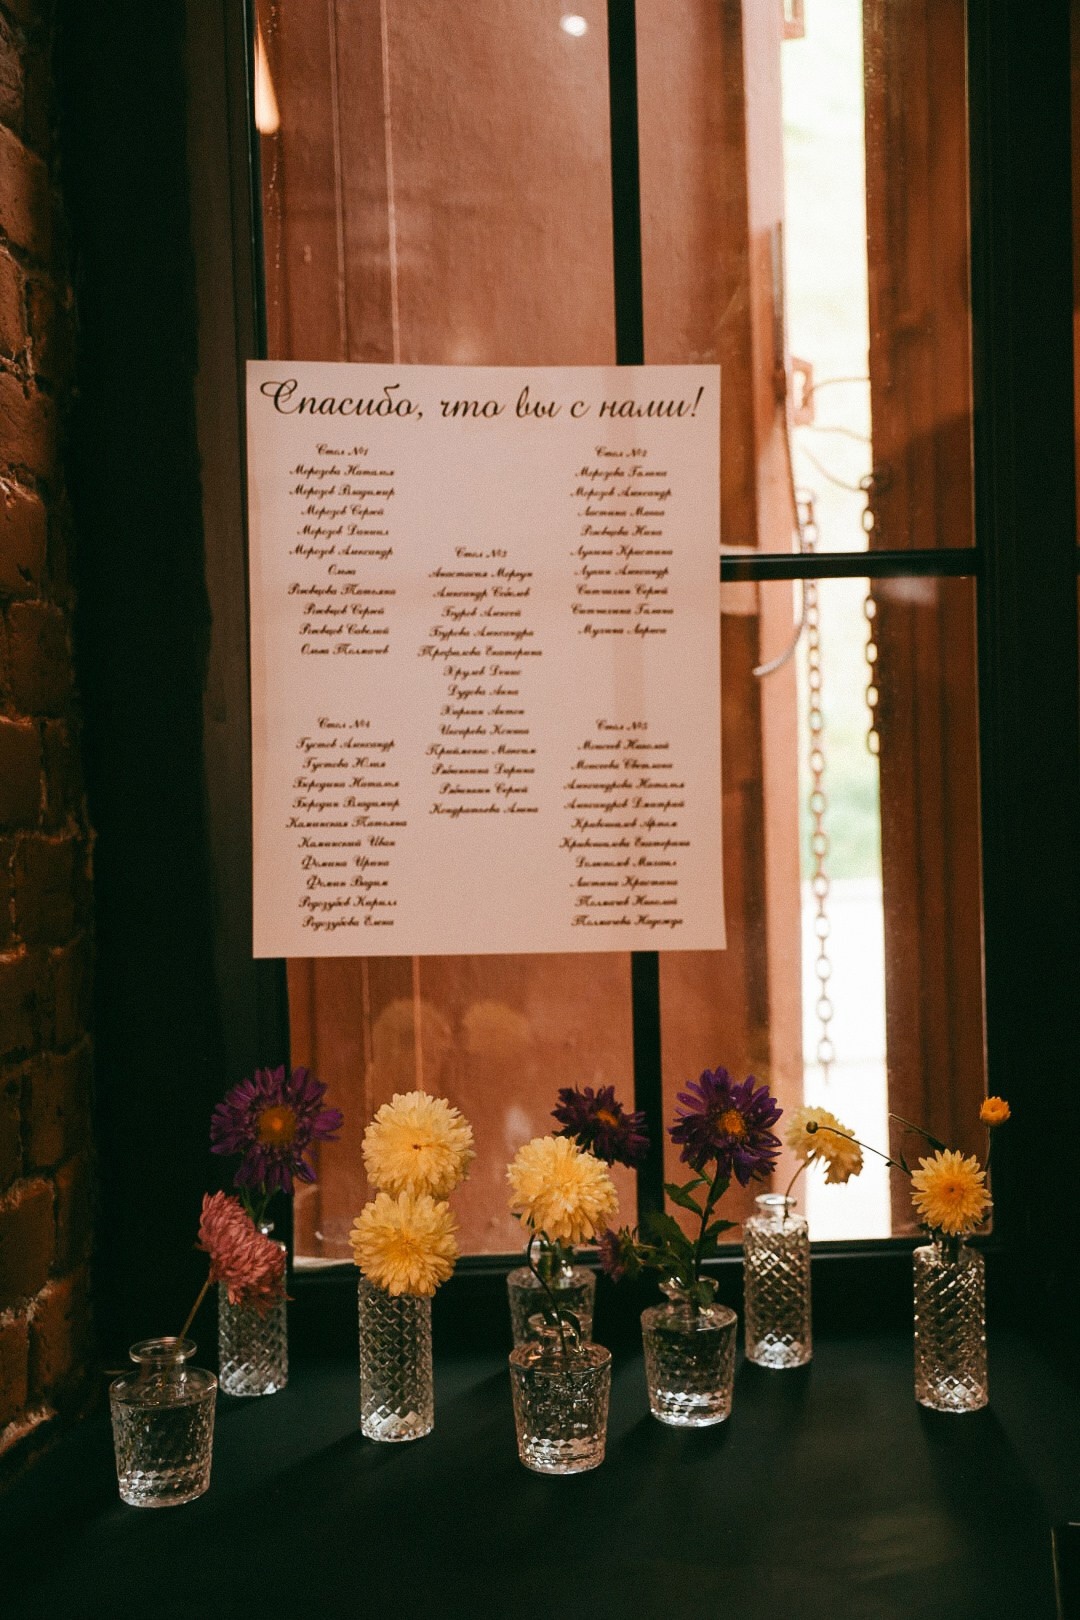 Спасибо, что вы с нами!
Стол №1
Морозова Наталья
Морозов Владимир
Морозов Сергей
Морозов Даниил
Морозов Александр
Ольга
Рековцова Татьяна
Сергей
Савелий
Ольга Толмачев
Стол №2
Морозова Галина
Морозов Александр
Ластина
Нина
Лунина Кристина
Лунин Александр
Ситчихин Сергей
Ситчихина Галина
Мухина Лариса
Стол №3
Анастасия Моргун
Александр Соболев
Бауров Алексей
Баурова Александра
Трефилова Екатерина
Хрулев Денис
Дудова Анна
Кирьян Антон
Ксения
Прийменко Максим
Рябинкина Дарина
Рябинкин Сергей
Кондратьева Алена
Стол №4
Густов Александр
Густова Юлия
Бородина Наталья
Бородин Владимир
Каминская Татьяна
Каминский Иван
Фомина Ирина
Фомин Вадим
Редозубов Кирилл
Редозубова Елена
Стол №5
Моисеев Николай
Моисеева Светлана
Александрова Наталья
Александров Дмитрий
Кривошапов Артем
Кривошапова Екатерина
Долгополов Михаил
Ластина Кристина
Толмачев Николай
Толмачева Надежда